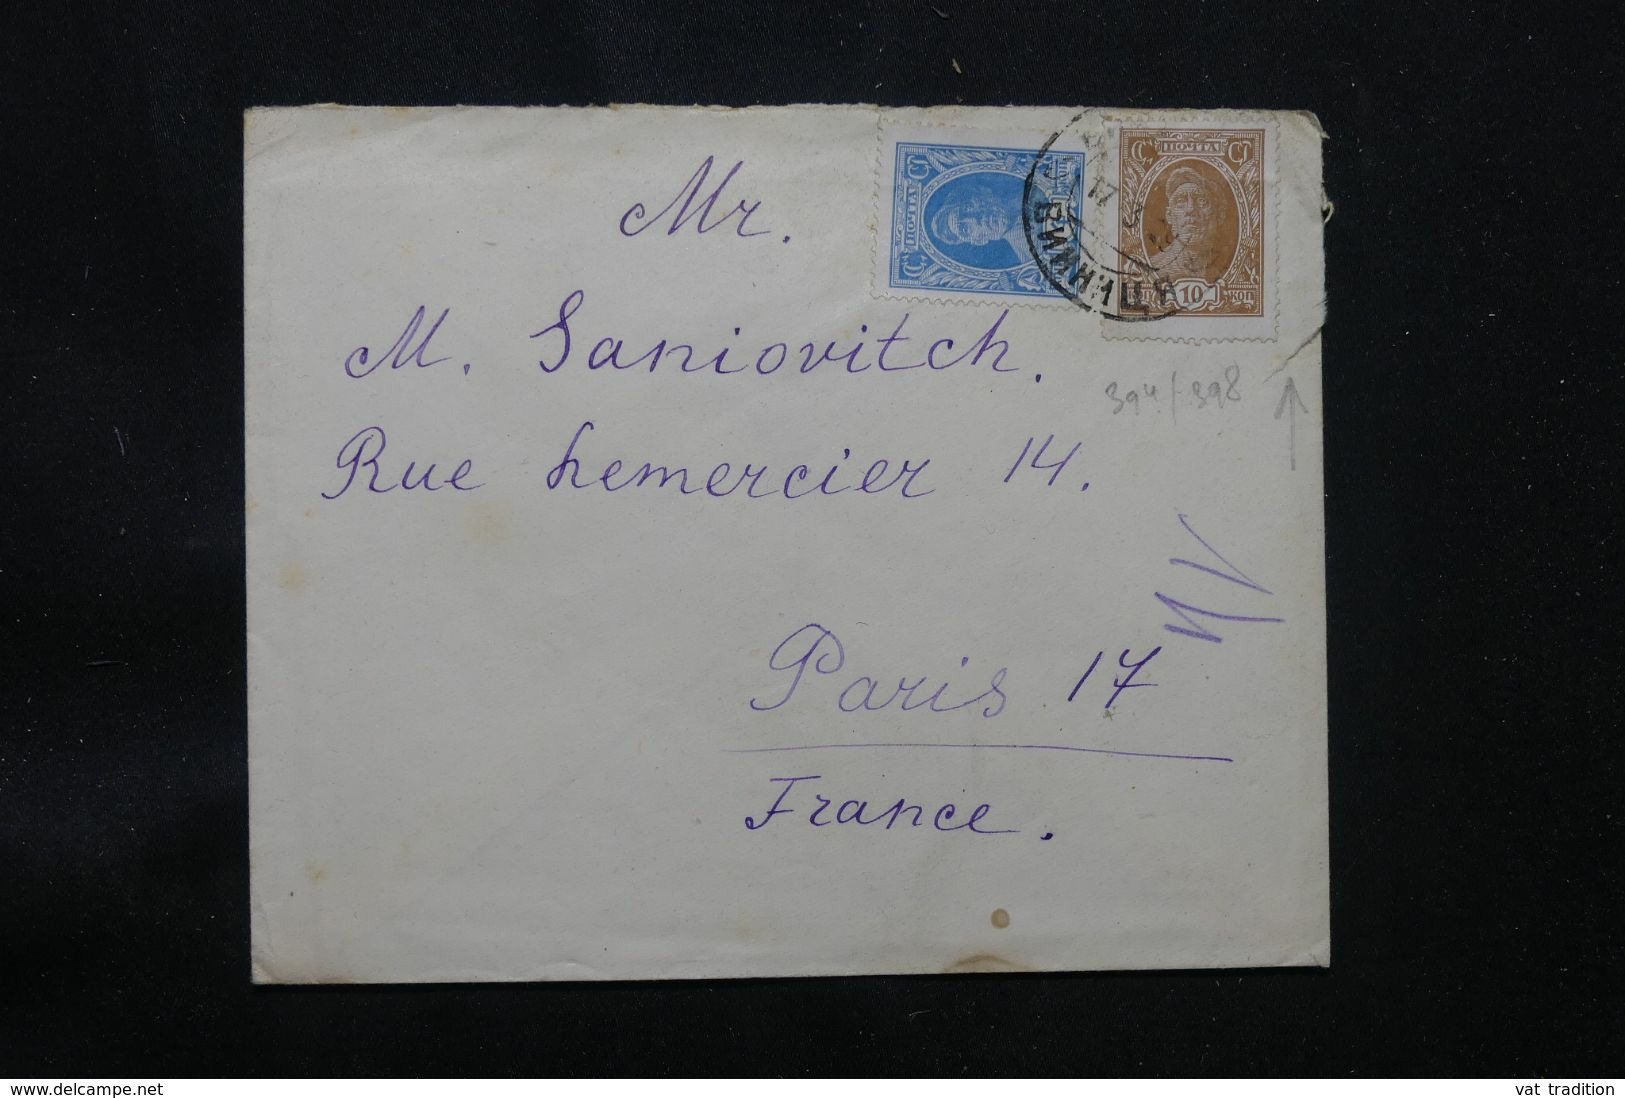 Mr.
M. Saniovitch.
Rue Lemercier 14.
Paris 17
France.
394/398
ПОЧТА
ПОЧТА
10
КОП
17
ВИННИЦА
www.delcampe.net
vat tradition